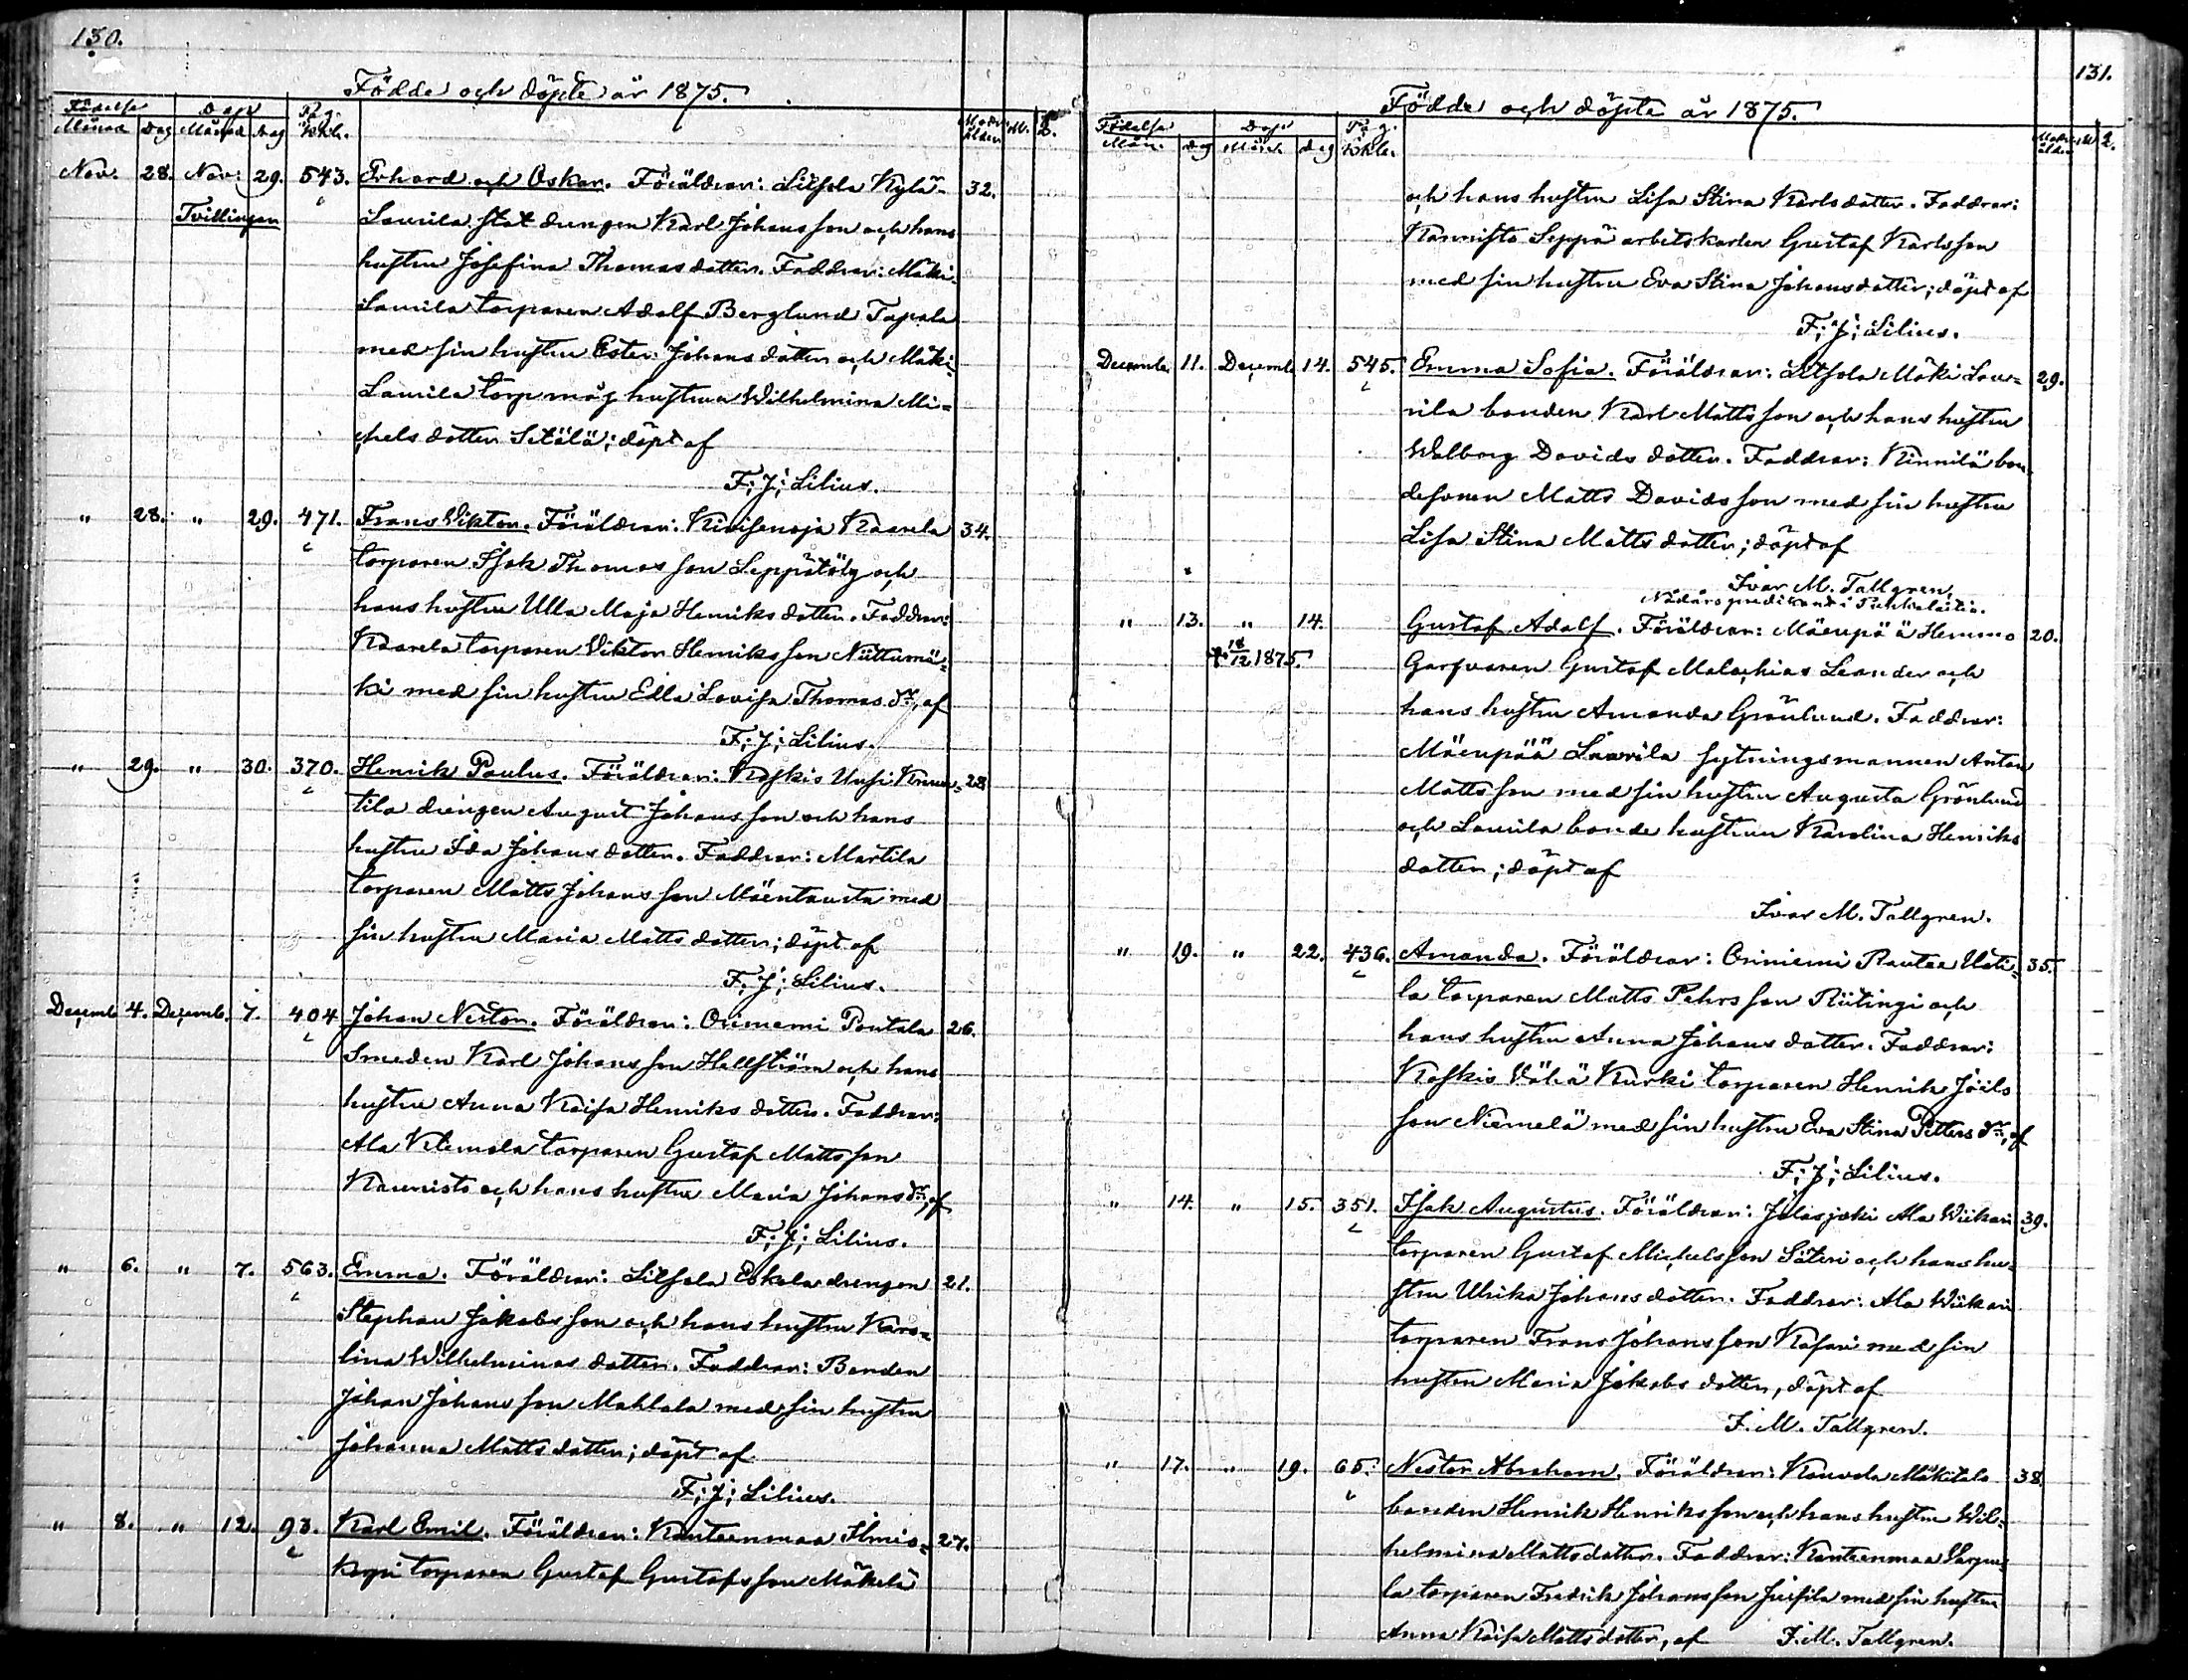 130.
Födde och döpte år 1875.
Födelse Dop Pag.
Månad Dag Månad Dag kkb. Mod. ålder M. 2.
Nov. 28. Nov: 29. 543. Erhard och Oskar. Föräldrar: Liesola Kylä- 32.
Tvillingar Laurila stat drengen Karl Johansson och hans
hustru Josefina Thomasdotter. Faddrar: Mäki-
Laurila torparen Adolf Berglund Tapala
med sin hustru Ester Johansdotter och Mäki-
Laurila torpmåg hustrun Wilhelmina Mi-
chelsdotter Setälä; döpt af
F; J; Lilius.
" 28. " 29. 471. Frans Viktor. Föräldrar: Kivisenoja Kaarela 34.
torparen Isak Thomasson Seppätölg och
hans hustru Ulla Maja Henriksdotter. Faddrar:
Kaarela torparen Viktor Henriksson Niittumä-
ki med sin hustru Edla Lovisa Thomasdr, af
F; J; Lilius.
" 29. " 30. 370. Henrik Paulus. Föräldrar: Koskis Uusi Knuu- 28
tila drengen August Johansson och hans
hustru Ida Johansdotter. Faddrar: Martila
torparen Matts Johansson Mäentausta med
sin hustru Maria Mattsdotter; döpt af
F; J; Lilius.
Decemb. 4. Decemb. 7. 404 Johan Nestor. Föräldrar: Orinemi Pontala 26.
Smeden Karl Johansson Hellström och hans
hustru Anna Kaisa Henriksdotter. Faddrar:
Ala Klemola torparen Gustaf Mattsson
Kaunisto och hans hustru Maria Johansdr, af
F; J; Lilius.
" 6. " 7. 563. Emma. Föräldrar: Liesola Eskola drengen 21.
Stephan Jakobsson och hans hustru Karo-
lina Wilhelminasdotter. Faddrar: Bonden
Johan Johansson Mahlala med sin hustru
Johanna Mattsdotter; döpt af
F; J; Lilius.
" 8. " 12. 93. Karl Emil. Föräldrar: Kanteenmaa Ilmis- 27.
korpi torparen Gustaf Gustafsson Mäkelä
131.
Födde och döpte år 1875.
Födelse Dop Pag.
Mån. dag Mån. dag kkb. Mod. ålder M 2.
och hans hustru Lisa Stina Karlsdotter. Faddrar:
Kannisto Seppä arbetskarlen Gustaf Karlsson
med sin hustru Eva Stina Johansdotter; döpt af
F; J; Lilius.
Decemb. 11. Decemb. 14. 545. Emma Sofia. Föräldrar: Liesola Mäki Lau- 29.
rila bonden Karl Mattsson och hans hustru
Walborg Davidsdotter. Faddrar: Kinnilä bon-
desonen Matts Davidsson med sin hustru
Lisa Stina Mattsdotter; döpt af
Ivar M. Tallgren,
Nådårspredikant i
" 13. " 14. Gustaf Adolf. Föräldrar: Mäenpää Hemmo 20.
† 18/12 1875. Garfvaren Gustaf Malachias Leander och
hans hustru Amanda Grönlund. Faddrar:
Mäenpää Laurila sytningsmannen Anton
Mattsson med sin hustru Augusta Grönlund
och Laurila bonde hustrun Karolina Henriks
dotter; döpt af
Ivar M. Tallgren.
" 19. " 22. 436. Amanda. Föräldrar: Oriniemi Rautaa Uoti- 35.
la torparen Matts Pehrsson Riitingi och
hans hustru Anna Johansdotter. Faddrar:
Koskis Vähä Kurki torparen Henrik Joels
son Niemelä med sin hustru Eva Stina Pettersdr, af
F; J; Lilius.
" 14. " 15. 351. Isak Augustus. Föräldrar: Jalasjoki Ala Wiikari 39.
torparen Gustaf Michelsson Säteri och hans hu-
stru Ulrika Johansdotter. Faddrar: Ala Wiikari
torparen Frans Johansson Kasari med sin
hustru Maria Jakobsdotter, döpt af
I. M. Tallgren.
" 17. " 19. 65. Nestor Abraham. Föräldrar: Kouvola Mäkitalo 38
bonden Henrik Henriksson och hans hustru Wil-
helmina Mattsdotter. Faddrar: Kanteenmaa
la torparen Fredrik Johansson med sin hustru
Anna Kaisa Mattsdotter, af I. M. Tallgren.